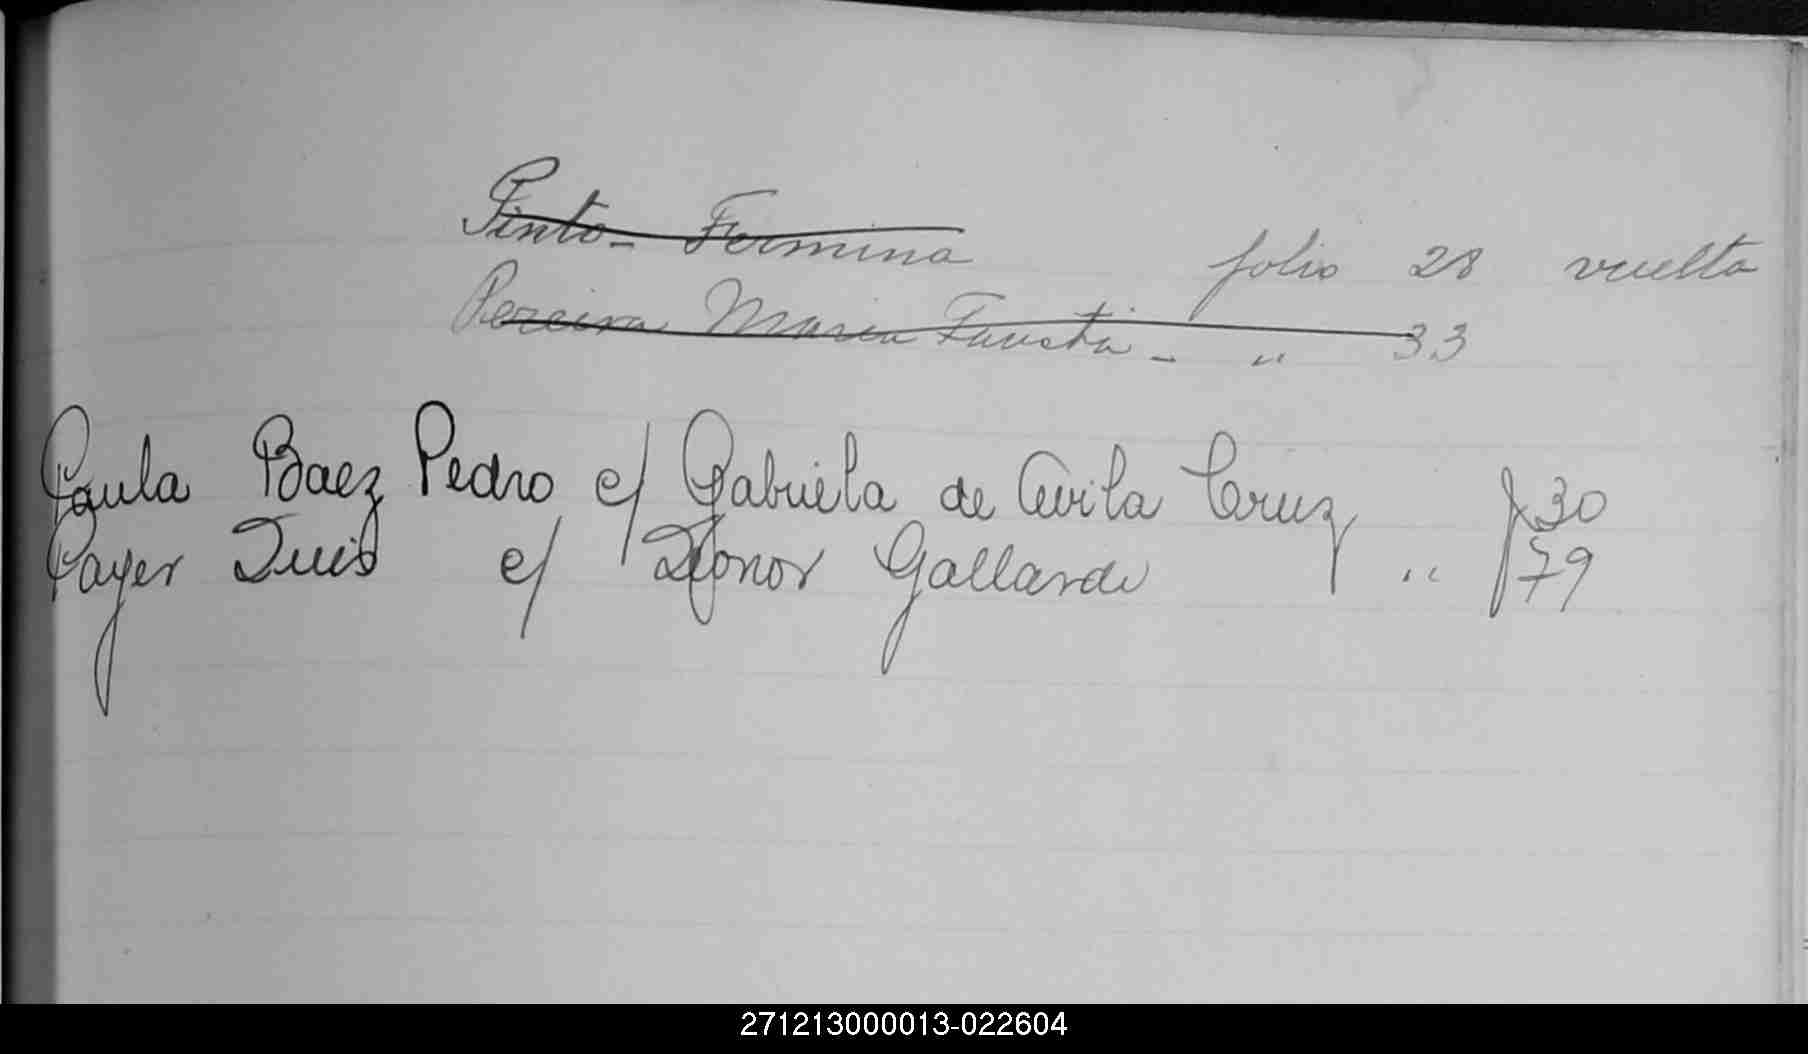 Pinto - Fermina folio 28 vuelta
Pereira Maria Fausta - " 33
Paula Baez Pedro c/ Gabriela de Avila Cruz " f 30
Payer Luis c/ Leonor Gallardo " f 79
271213000013-022604